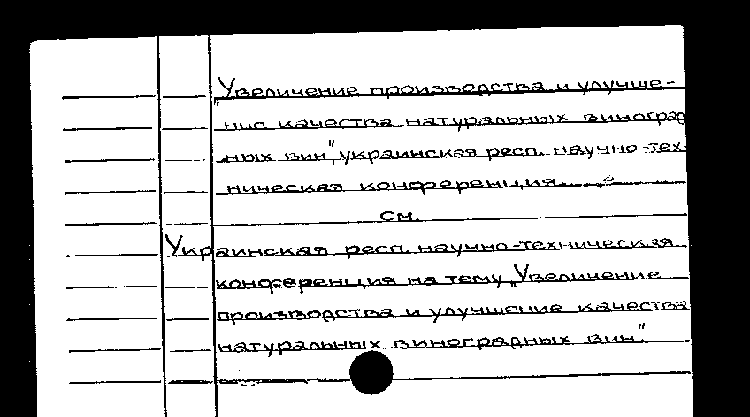 "Увеличение производства и улучше-
ние качества натуральных виноград
ных вин", украинская респ. научно-тех-
ническая конференция.....
см.
Украинская респ. научно-техническая
конференция на тему „Увеличение
производства и улучшение качества
натуральных виноградных вин"